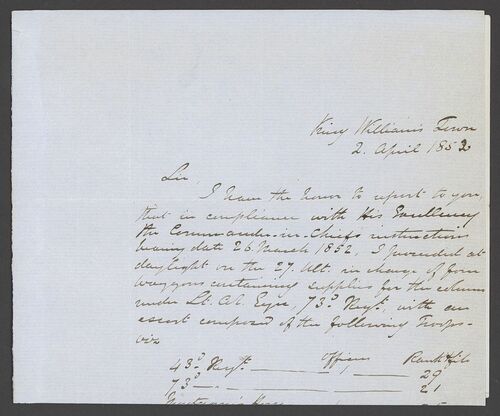 King William's Town
2. April 1852
Sir
I have the honor to report to you
that in compliance with His Excellency
the Commander-in-Chiefs instruction
bearing date 26 March 1852, I proceeded at
daylight on the 27. Ult. in charge of four
waggons containing supplies for the column
under Lt. Col. Eyre, 73d Regt, with an
escort composed of the following Troops-
viz
43d Regt. — Officers 1 — Rank & file 29
73d — — 21